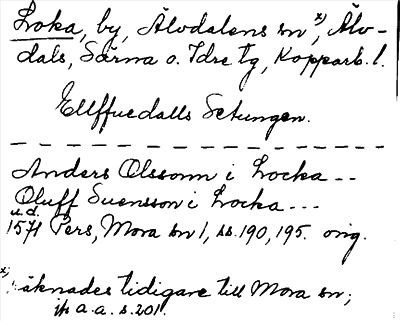 Loka, by, Älvdalens sn x), Älv-
dals, Särna o. Idre tg, Kopparb. l.
Ellffuedalls Setungen.
Anders Olssonn i Locka --
Oluff Suensson i Locka ---
u.d.
1571 Pers, Mora sn 1, ss. 190, 195. orig.
x) räknades tidigare till Mora sn;
jfr a.a. s. 201.